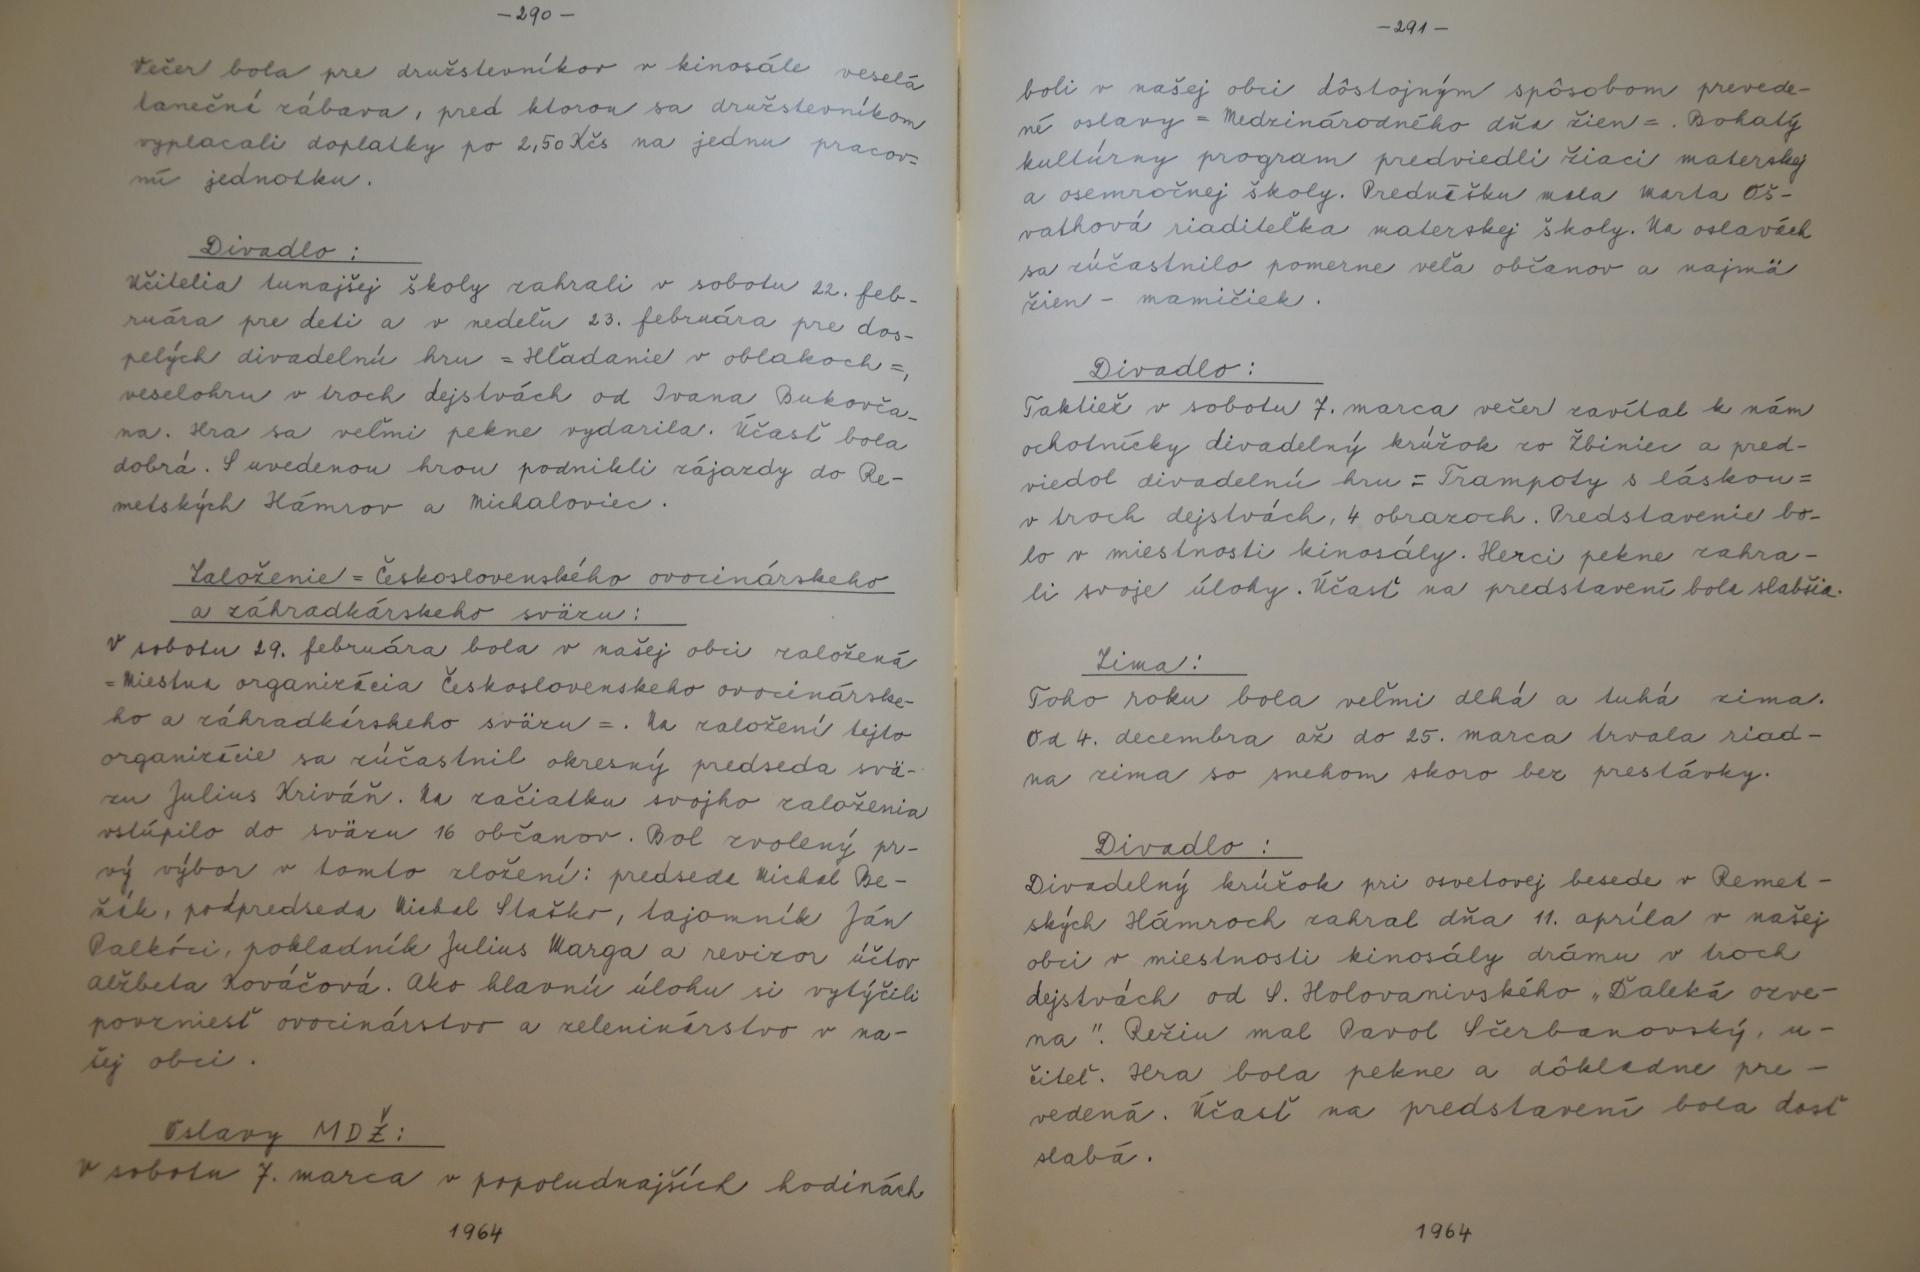 -290-
Večer bola pre družstevníkov v kinosále veselá
tanečná zábava, pred ktorou sa družstevníkom
vyplacali doplatky po 2,50 Kčs na jednu pracov=
nú jednotku.
Divadlo:
Učitelia tunajšej školy zahrali v sobotu 22. feb-
ruára pre deti a v nedeľu 23. februára pre dos-
pelých divadelnú hru = Hľadanie v oblakoch =,
veselohru v troch dejstvách od Ivana Bukovča-
na. Hra sa veľmi pekne vydarila. Účasť bola
dobrá. S uvedenou hrou podnikli zájazdy do Re-
metských Hámrov a Michaloviec.
Založenie = Československého ovocinárskeho
a záhradkárskeho sväzu:
V sobotu 29. februára bola v našej obci založená
= Miestna organizácia Československeho ovocinárske-
ho a záhradkárskeho sväzu =. Na založení tejto
organizácie sa zúčastnil okresný predseda svä-
zu Julius Kriváň. Na začiatku svojho založenia
vstúpilo do sväzu 16 občanov. Bol zvolený pr-
vý výbor v tomto zložení: predseda Michal Be-
žák, podpredseda Michal Staško, tajomník Ján
Palkóci, pokladník Julius Marga a revizor účtov
Alžbeta Kováčová. Ako hlavnú úlohu si vytýčili
povzniesť ovocinárstvo a zeleninárstvo v na-
šej obci.
Oslavy MDŽ:
V sobotu 7. marca v popoludnajších hodinách
1964
-291-
boli v našej obci dôstojným spôsobom prevede-
né oslavy = Medzinárodného dňa žien =. Bohatý
kultúrny program predviedli žiaci materskej
a osemročnej školy. Prednášku mala Marta Oš-
vathová riaditeľka materskej školy. Na oslavách
sa zúčastnilo pomerne veľa občanov a najmä
žien - mamičiek.
Divadlo:
Taktiež v sobotu 7. marca večer zavítal k nám
ochotnícky divadelný krúžok zo Žbiniec a pred-
viedol divadelnú hru = Trampoty s láskou =
v troch dejstvách, 4 obrazoch. Predstavenie bo-
lo v miestnosti kinosály. Herci pekne zahra-
li svoje úlohy. Účasť na predstavení bola slabšia.
Zima:
Toho roku bola veľmi dlhá a tuhá zima.
Od 4. decembra až do 25. marca trvala riad-
na zima so snehom skoro bez prestávky.
Divadlo:
Divadelný krúžok pri osvetovej besede v Remet-
ských Hámroch zahral dňa 11. apríla v našej
obci v miestnosti kinosály drámu v troch
dejstvách od S. Holovanivského „Ďaleká ozve-
na". Režiu mal Pavol Sčerbanovský, u-
čiteľ. Hra bola pekne a dôkladne pre-
vedená. Účasť na predstavení bola dosť
slabá.
1964